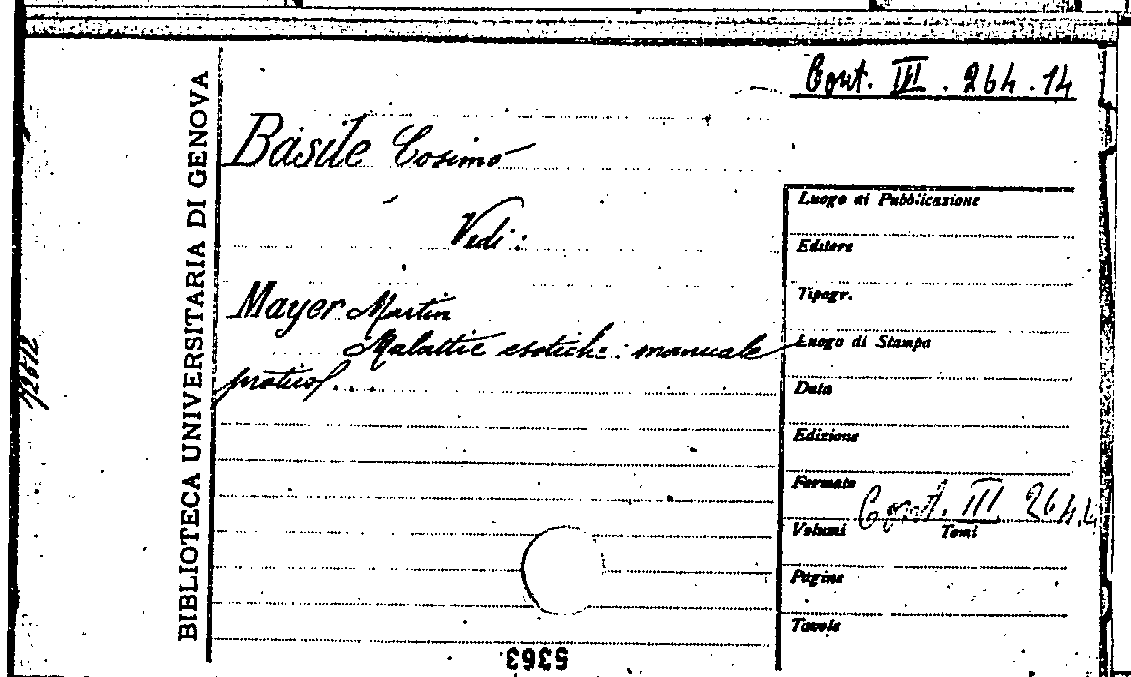 Cont. III. 264.14
BIBLIOTECA UNIVERSITARIA DI GENOVA
Basile Cosimo
Vedi:
Mayer Martin
Malattie esotiche: manuale
pratico....
Luogo di Pubblicazione
Editore
Tipogr.
Luogo di Stampa
Data
Edizione
Formato
Cont. III 264.
Volumi Tomi
Pagine
Tavole
5363